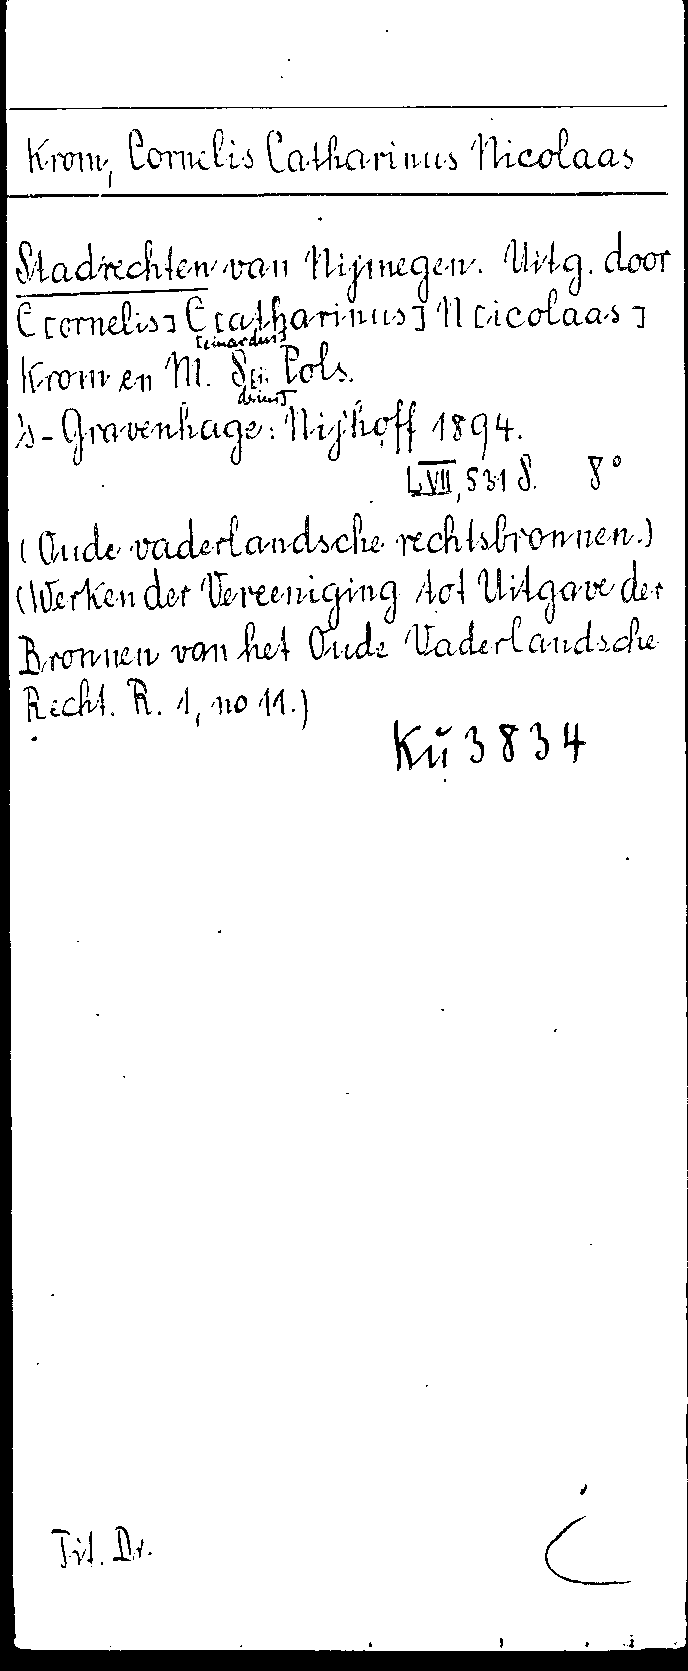 Krom, Cornelis Catharinus Nicolaas
Stadrechten van Nijmegen. Uitg. door
C[ornelis] C[atharinus] N[icolaas]
Krom en M.[einardus] S[ij]derius] Pols.
's-Gravenhage: Nijhoff 1894.
LVII, 531 S. 8°
(Oude vaderlandsche rechtsbronnen.)
(Werken der Vereeniging tot Uitgave der
Bronnen van het Oude Vaderlandsche
Recht. R. 1, no 11.)
Kü 3834
Tit. Dr.